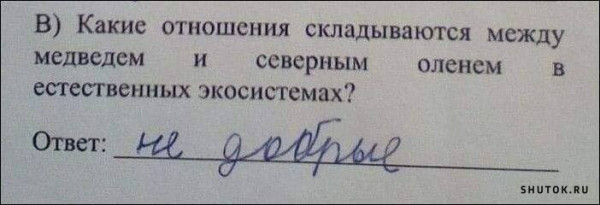 В) Какие отношения складываются между
медведем и северным оленем в
естественных экосистемах?
Ответ: не добрые
SHUTOK.RU